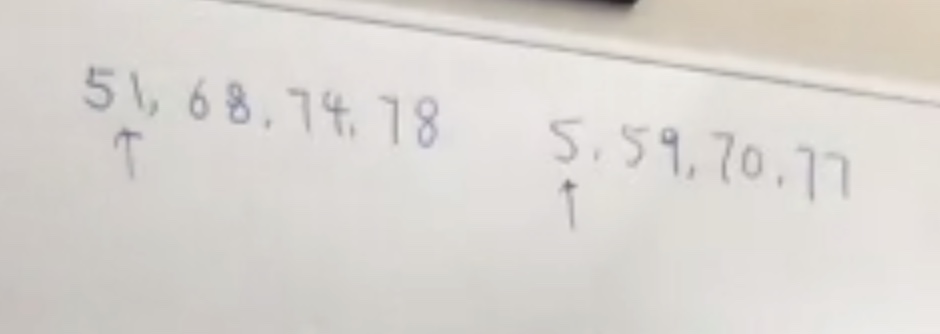 51, 68, 74, 78 5, 59, 70, 77
↑ ↑